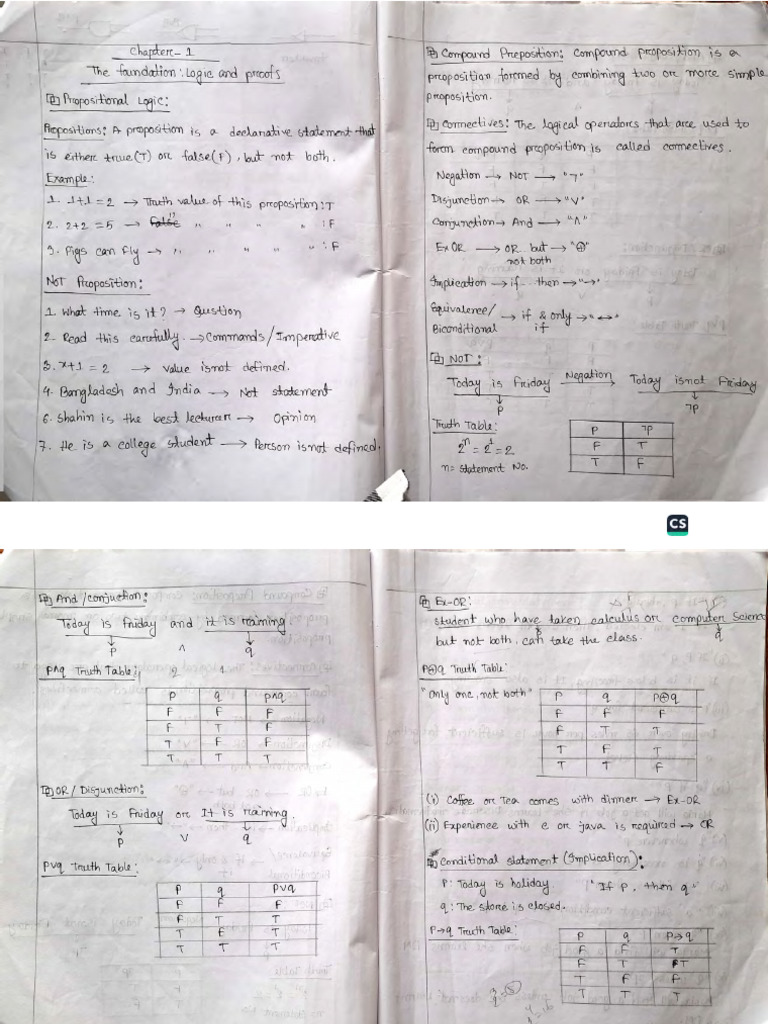 Chapter - 1
The foundation: Logic and proofs
Propositional Logic:
Propositions: A proposition is a declarative statement that
is either true(T) or false(F), but not both.
Example:
1. 1+1 = 2 → Truth value of this preposition: T
2. 2+2 = 5 → " " " " : F
3. Pigs can fly → " " " " : F
Not Proposition:
1. What time is it? → Qustion
2. Read this carefully. → Commands/Imperative
3. x+1 = 2 → value is not defined.
4. Bangladesh and India → Not statement
6. Shahin is the best lecturer → Opinion
7. He is a college student → Person is not defined.
Compound Preposition: Compound proposition is a
proposition formed by combining two or more simple
proposition.
Connectives: The logical operators that are used to
form compound proposition is called connectives.
Negation → NOT → "¬"
Disjunction → OR → "∨"
Conjunction → And → "∧"
Ex OR → OR but → "⊕"
not both
Implication → if... then → "→"
Equivalence/ → if & only → "↔"
Biconditional if
NOT:
Today is Friday Negation → Today is not Friday
P ¬P
Truth Table:
2ⁿ = 2¹ = 2
n = statement No.
P ¬P
F T
T F
And /conjuction:
Today is Friday and it is raining
P ∧ q
P∧q Truth Table: 2 1
P q P∧q
F F F
F T F
T F F
T T T
OR / Disjunction:
Today is Friday or It is raining.
P ∨ q
P∨q Truth Table:
P q P∨q
F F F
F T T
T F T
T T T
Ex-OR:
student who have taken calculus or computer Science
P q
but not both, can take the class.
P⊕q Truth Table:
"Only one, not both"
P q P⊕q
F F F
F T T
T F T
T T F
(i) Coffee or Tea comes with dinner → Ex-OR
(ii) Experience with c or java is required → OR
Conditional statement (Implication):
P: Today is holiday. "If P, then q"
q: The store is closed.
P→q Truth Table:
P q P→q
F F T
F T T
T F F
T T T
CS